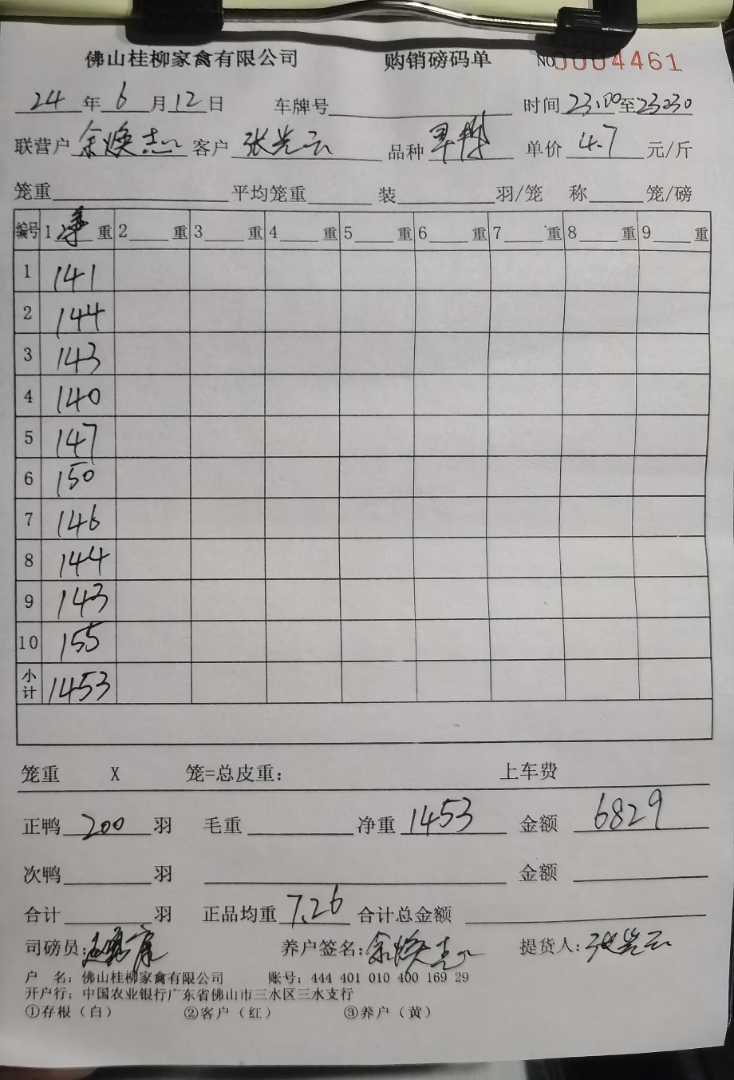 佛山桂柳家禽有限公司 购销磅码单 NO 0004461
24年6月12日 车牌号 时间23:00至23:30
联营户 余焕志 客户 张光云 品种 单价 4.7 元/斤
笼重 平均笼重 装 羽/笼 称 笼/磅
编号 1净重 2 重 3 重 4 重 5 重 6 重 7 重 8 重 9 重
1 141
2 144
3 143
4 140
5 147
6 150
7 146
8 144
9 143
10 155
小计 1453
笼重 X 笼=总皮重: 上车费
正鸭 200 羽 毛重 净重 1453 金额 6829
次鸭 羽 金额
合计 羽 正品均重 7.26 合计总金额
司磅员: 养户签名:余焕志 提货人:张光云
户 名: 佛山桂柳家禽有限公司 账号: 444 401 010 400 169 29
开户行: 中国农业银行广东省佛山市三水区三水支行
①存根(白) ②客户(红) ③养户(黄)